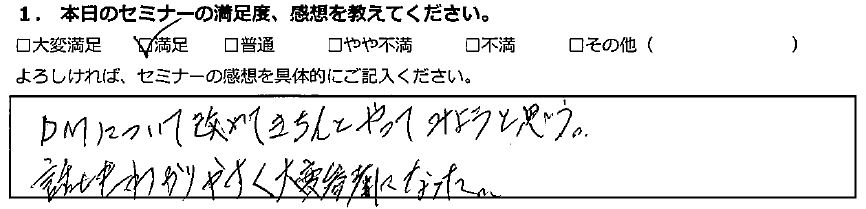 1. 本日のセミナーの満足度、感想を教えてください。
□大変満足 ☑満足 □普通 □やや不満 □不満 □その他（ ）
よろしければ、セミナーの感想を具体的にご記入ください。
DMについて改めてきちんとやってみようと思う。
話もわかりやすく大変参考になった。